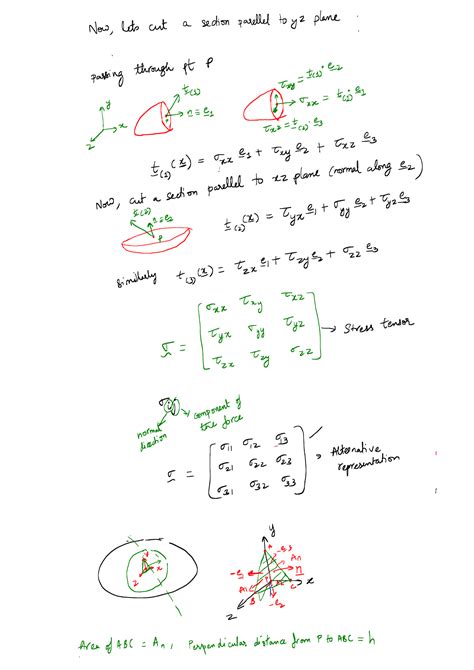 Now, lets cut a section parellel to yz plane
passing through pt P
y
x
z
t(1)
n ≡ e1
τxy = t(1)·e2
σxx = t(1)·e1
τxz = t(1)·e3
t(1)(x) = σxx e1 + τxy e2 + τxz e3
Now, cut a section parellel to xz plane (normal along e2)
t(2)
n ≡ e2
P
t(2)(x) = τyx e1 + σyy e2 + τyz e3
Similarly t(3)(x) = τzx e1 + τzy e2 + σzz e3
σ = [ σxx τxy τxz
τyx σyy τyz
τzx τzy σzz ] → Stress tensor
σij
normal direction
component of the force
σ = [ σ11 σ12 σ13
σ21 σ22 σ23
σ31 σ32 σ33 ] → Alternative representation
x
z
y
A
-e3
An
-e1
n
P
C
x
B
-e2
z
Area of ABC = An, Perpendicular distance from P to ABC = h